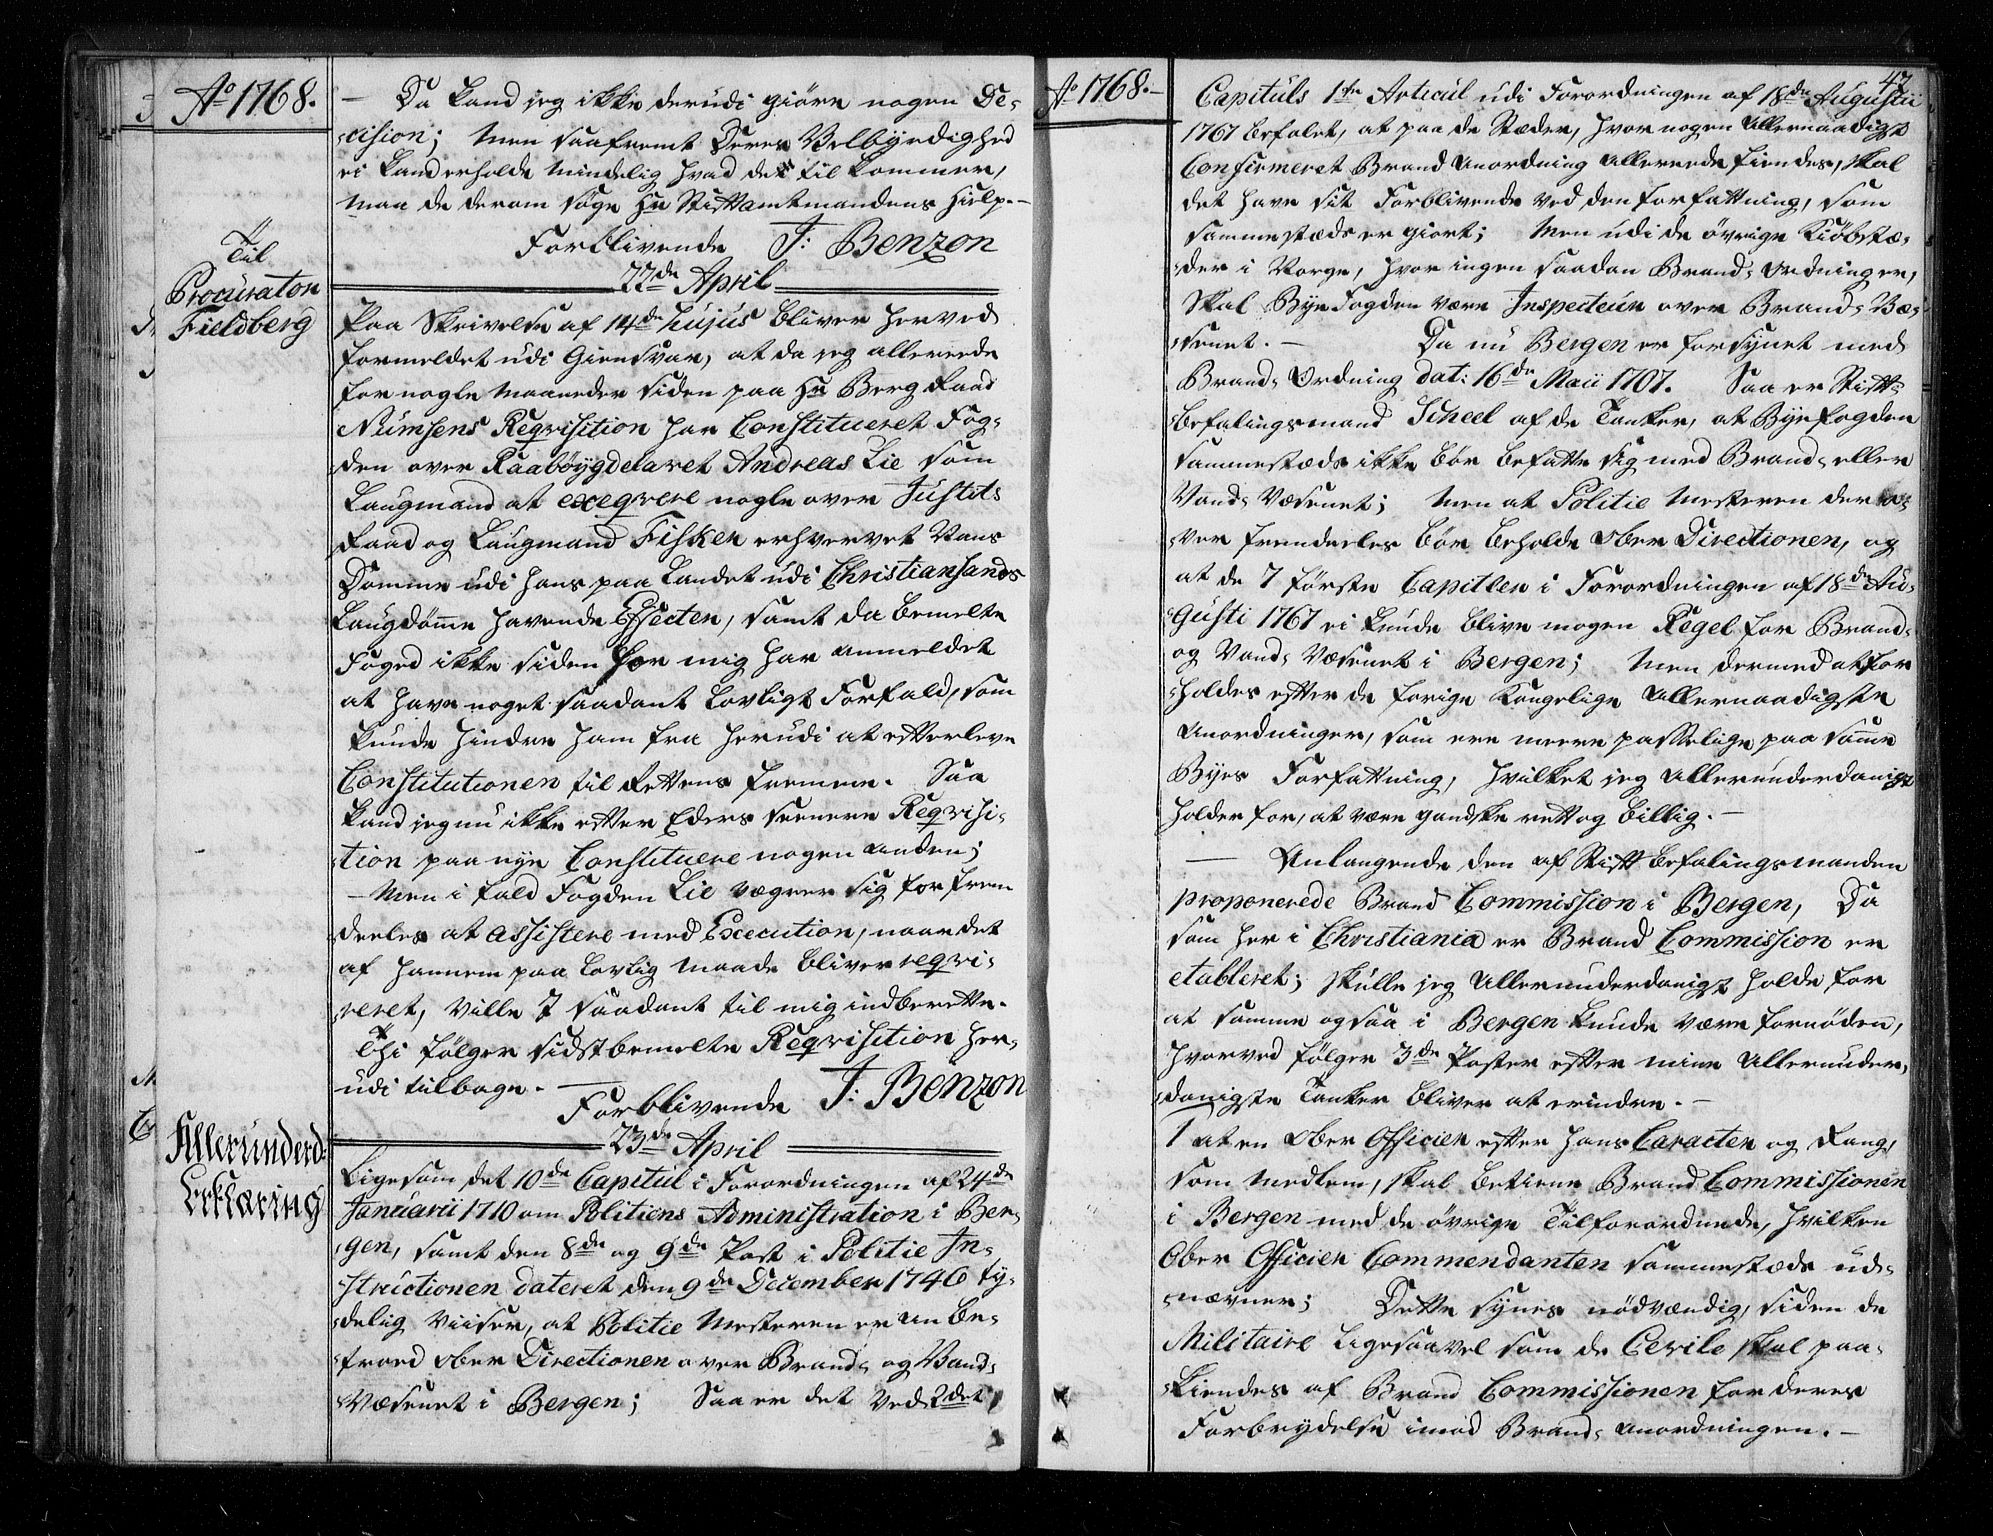 Ao 1768.
— Da kand jeg ikke derudi giöre nogen De-
cision; Men saafremt Deres Velbyrdighed
ei kand erholde mindelig hvad det til kommer,
maa de derom söge Hr Stiftamtmandens Hielp. —
Forblivende J: Benzon
22de April
Til
Procurator
Fieldberg
Paa Skrivelse af 14de hujus bliver herved
formeldet udi Giensvar, at da jeg allereede
for nogle Maaneder siden paa Hr Berg Raad
Numsens Reqvisition har Constitueret Fog-
den over Raaböygdelavet Andreas Lie som
Laugmand at exeqvere nogle over Justits
Raad og Laugmand Fisker erhvervet Vans
Domme udi hans paa Landet udi Christiansands
Laugdömme havende Effecter, samt da bemelte
Foged ikke siden for mig har anmeldet
at have noget saadant Lovligt Forfald, som
kunde hindre ham fra herudi at efterleve
Constitutionen til Rettens fremme. Saa
kand jeg nu ikke efter Eders seenere Reqvisi-
tion paa nye Constituere nogen anden;
— Men i fald Fogden Lie vægrer sig for frem
deeles at assistere med Execution, naar det
af hannem paa Lovlig Maade bliver reqvi-
reret, Ville I saadant til mig indberette.
Thi fölger sidstbemelte Reqvisition her-
udi tilbage. —
Forblivende J: Benzon
23de April
Allerunderd:
Erklæring
Ligesom det 10de Capitul i Forordningen af 24de
Januarii 1710 om Politiens Administration i Ber-
gen, samt den 8de og 9de Post i Politie In-
structionen dateret den 9de December 1746 ty-
delig Viiser, at Politie Mesteren er anbe-
troed Ober Directionen over Brand- og Vand-
Væsenet i Bergen; Saa er det ved 2det
Ao 1768. —
47
Capituls 1te Articul udi Forordningen af 18de Augustii
1767 befalet, at paa de Stæder, hvor nogen Allernaadigst
Confirmeret Brand Anordning allereede findes, skal
det have sit Forblivende ved den forfattning, som
sammestæds er giort; Men udi de övrige Kiöbstæ-
der i Norge, hvor ingen saadan Brand-Ordninger,
skal Bye Fogden være Inspecteur over Brand-Væ-
senet. — Da nu Bergen er forsynet med
Brand-Ordning dat: 16de Maii 1707. Saa er Stift-
befalingsmand Scheel af de Tanker, at Byefogden
sammestæds ikke bör befatte sig med Brand- eller
Vand-Væsenet; Men at Politie Mesteren der o-
ver fremdeeles bör beholde Ober Directionen, og
at de 7 förste Capitler i Forordningen af 18de Au-
gusti 1767 ei kunde blive nogen Regel for Brand-
og Vand-Væsenet i Bergen; Men dermed at for-
holdes efter de forige Kongelige Allernaadigste
Anordninger, som ere meere passelige paa samme
Byes Forfattning, hvilket jeg allerunderdanigst
holder for, at være gandske rett og billig. —
— Anlangende den af Stiftbefalingsmanden
proponerede Brand Commission i Bergen, Da
som her i Christiania er Brand Commission er
etableret; skulle jeg Allerunderdanigst holde for
at samme ogsaa i Bergen kunde være fornöden,
hvorved fölger 3de Poster efter mine Allerunder-
danigste Tanker bliver at erindre. —
1 at en Ober Officier efter hans Caracter og Rang,
som Medlem, skal betiene Brand Commissionen
i Bergen med de övrige Tilforordnede, hvilken
Ober Officier Commendanten sammestæds ud-
nævner; Dette synes nödvændig, siden de
Militaire ligesaavel som de Civile skal paa-
kiendes af Brand Commissionen for deres
Forbrydelse imod Brand-Anordningen. —